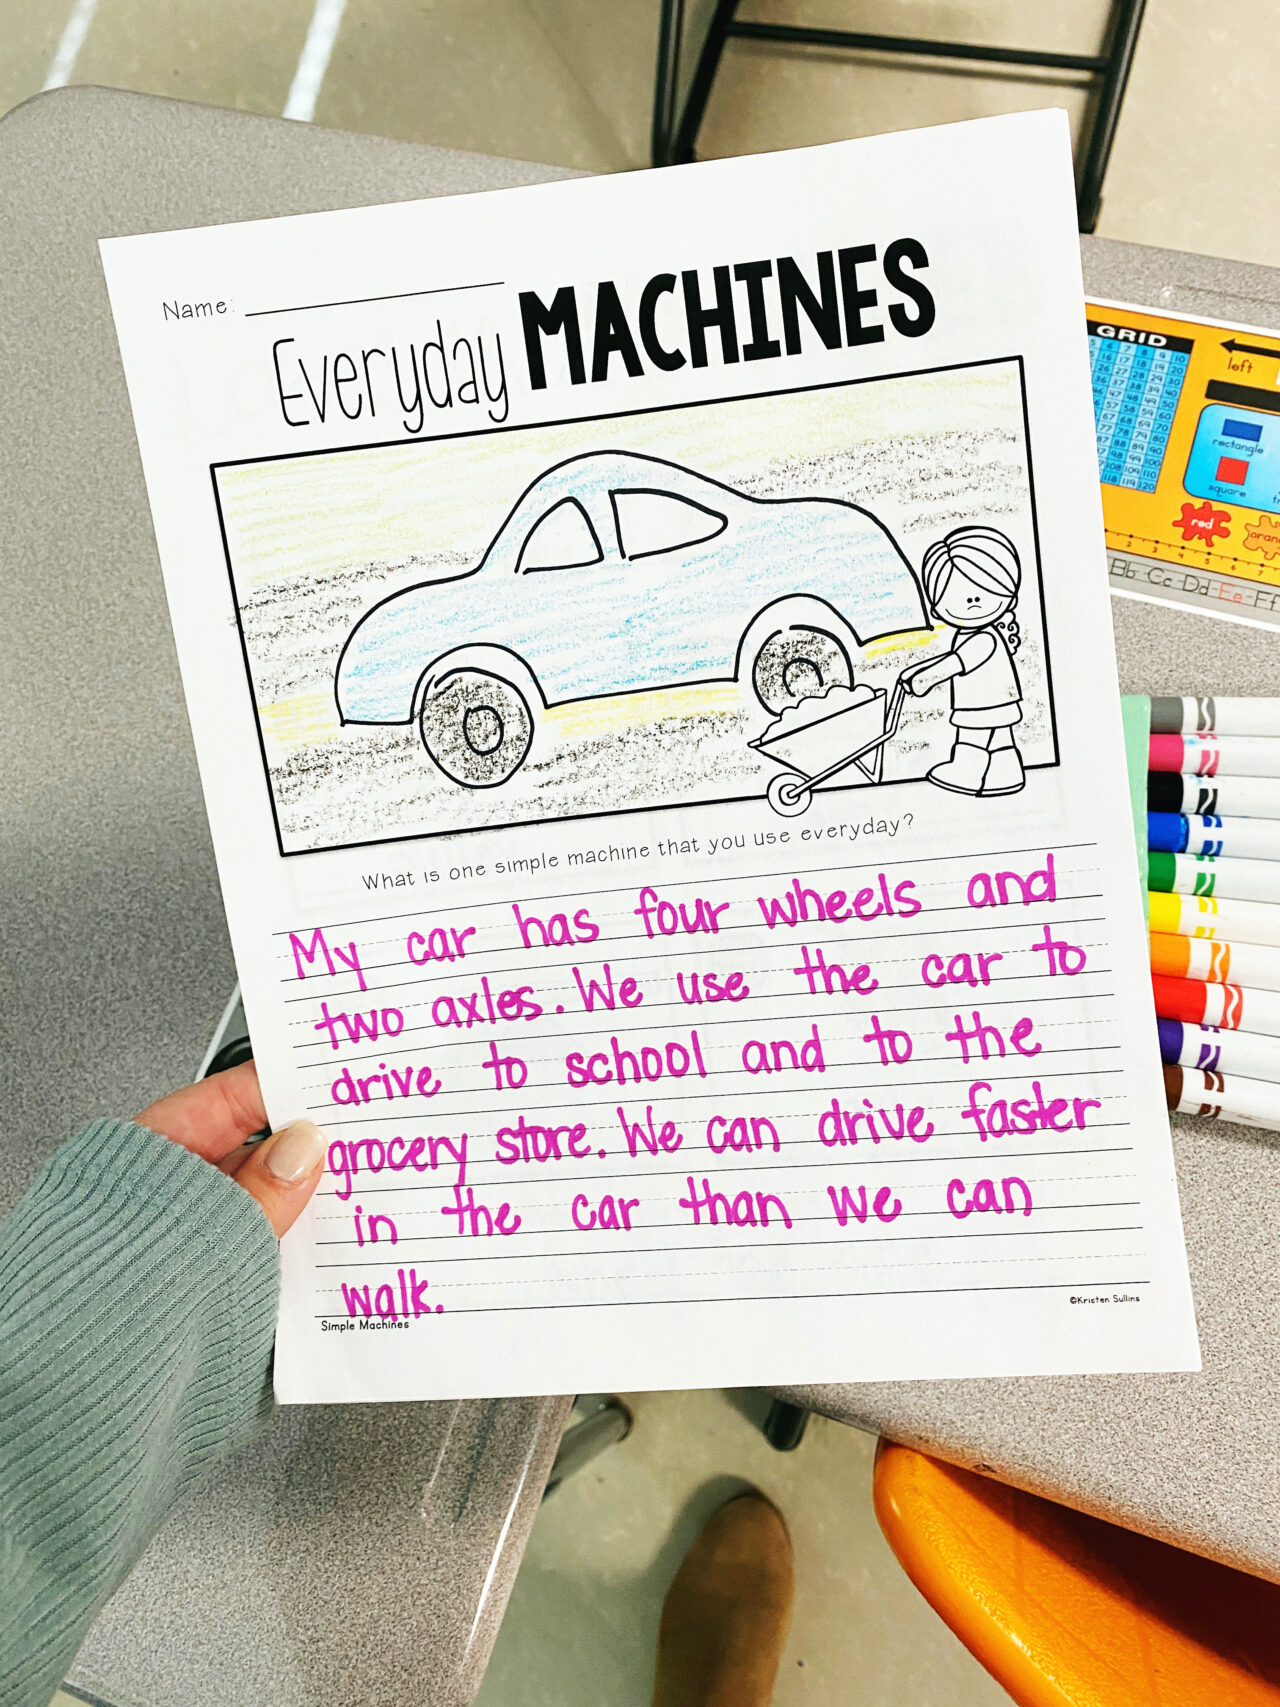 Name:
Everyday MACHINES
What is one simple machine that you use everyday?
My car has four wheels and
two axles. We use the car to
drive to school and to the
grocery store. We can drive faster
in the car than we can
walk.
Simple Machines
©Kristen Sullins
GRID
left
rectangle
square
red
Bb Cc Dd Ee Ff